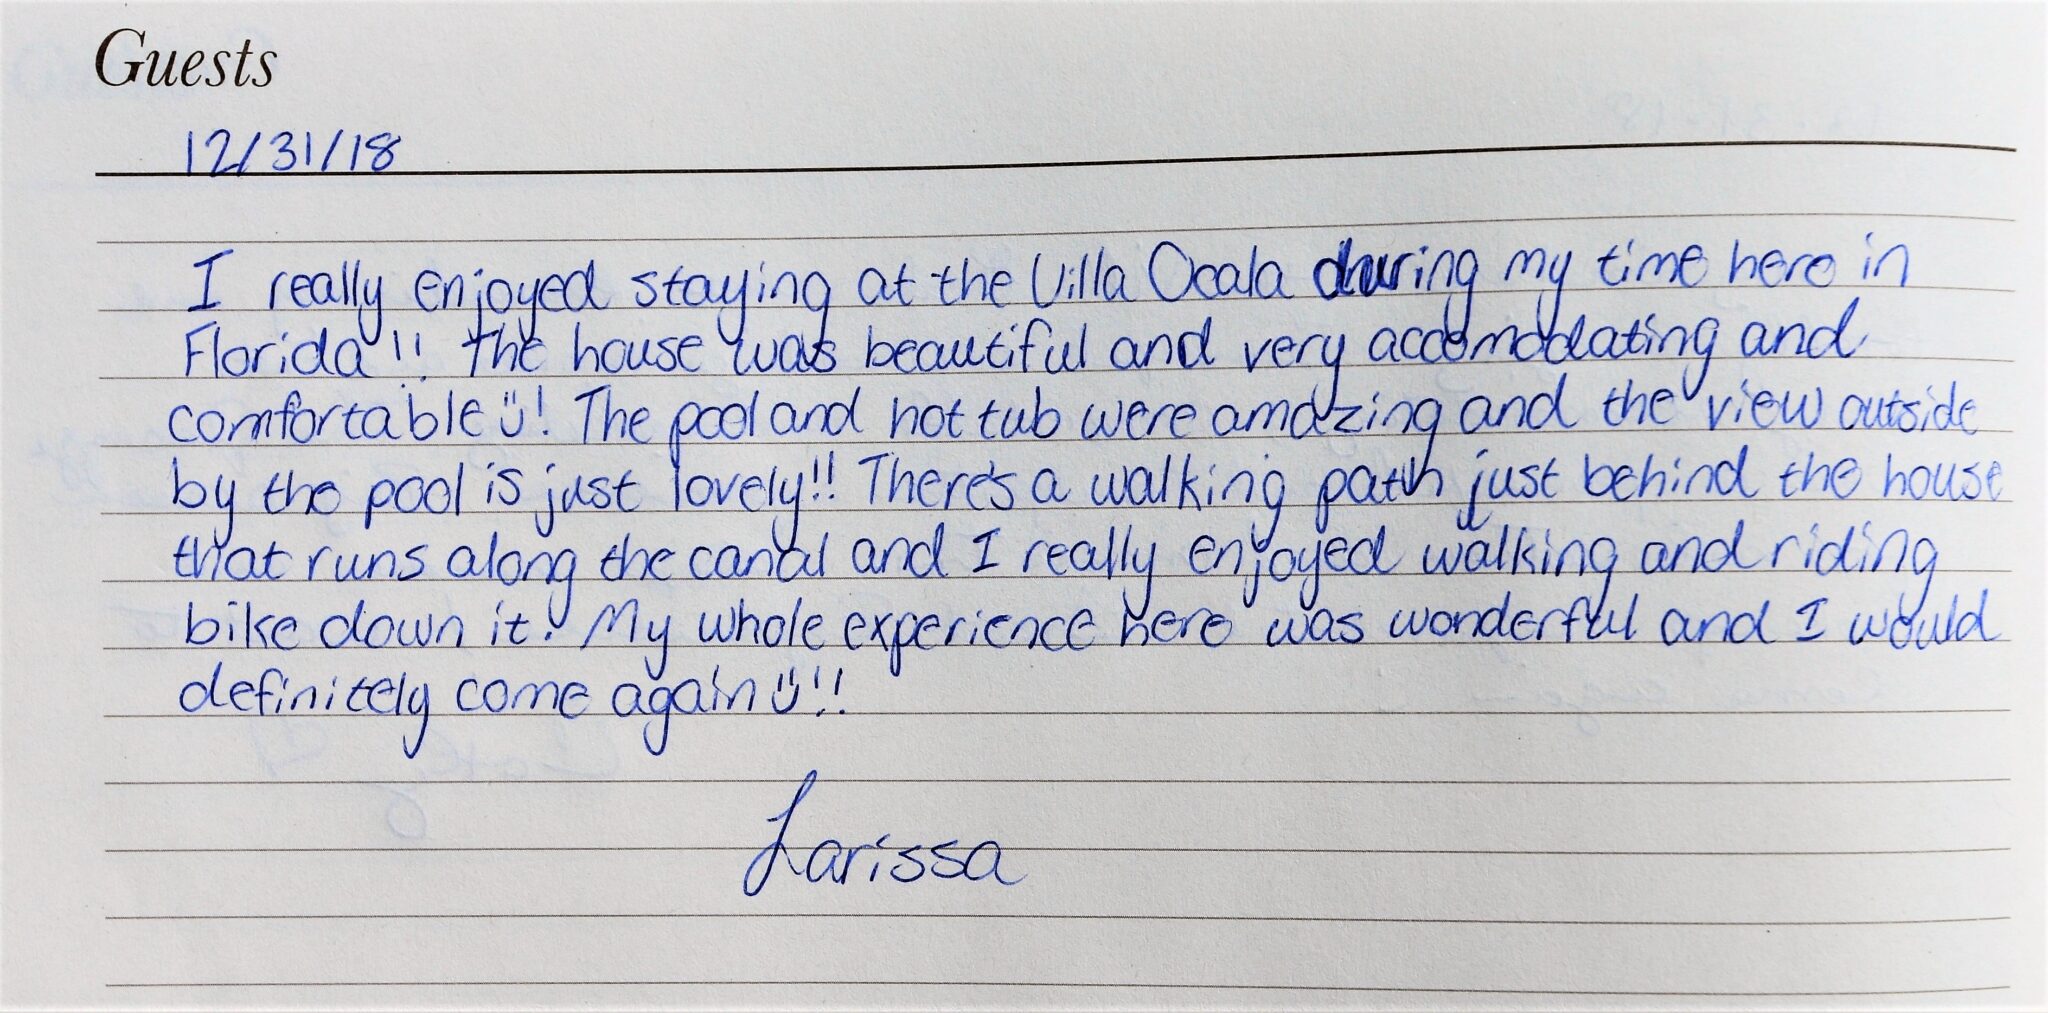 Guests
12/31/18
I really enjoyed staying at the Villa Ocala during my time here in
Florida!! The house was beautiful and very accomodating and
comfortable :)! The pool and hot tub were amazing and the view outside
by the pool is just lovely!! There's a walking path just behind the house
that runs along the canal and I really enjoyed walking and riding
bike down it. My whole experience here was wonderful and I would
definitely come again :)!!
Larissa